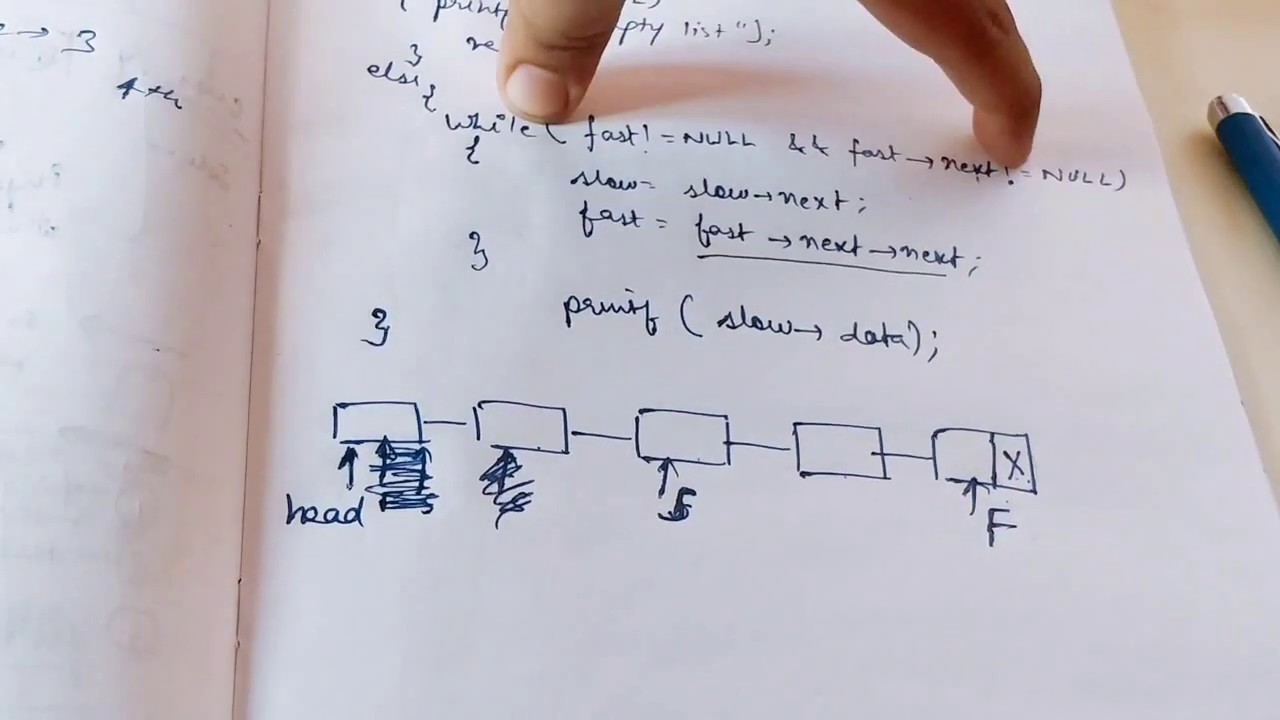 → 3
4th
{ print
pty list");
}
else
{
while( fast! = NULL && fast → next! = NULL)
{
slow = slow → next;
fast = fast → next → next;
}
printf ( slow → data);
}
X
head
S
F